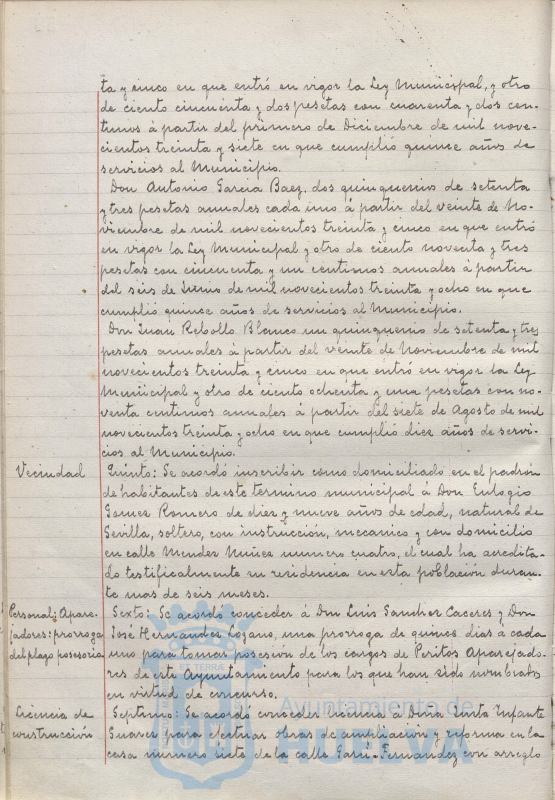 ta y cinco en que entró en vigor la Ley Municipal, y otro
de ciento cincuenta y dos pesetas con cuarenta y dos cen-
timos á partir del primero de Diciembre de mil nove-
cientos treinta y siete en que cumplió quince años de
servicios al Municipio.
Don Antonio Garcia Baez, dos quinquenios de setenta
y tres pesetas annales cada uno á partir del veinte de No-
viembre de mil novecientos treinta y cinco en que entró
en vigor la Ley Municipal y otro de ciento noventa y tres
pesetas con cincuenta y un centimos annales á partir
del seis de Junio de mil novecientos treinta y ocho en que
cumplió quince años de servicios al Municipio.
Don Juan Rebollo Blanco un quinquenio de setenta y tres
pesetas annales á partir del veinte de Noviembre de mil
novecientos treinta y cinco en que entró en vigor la Ley
Municipal y otro de ciento ochenta y una pesetas con no-
venta centimos annales á partir del siete de Agosto de mil
novecientos treinta y ocho en que cumplió diez años de servi-
cios al Municipio.
Vecindad
Quinto: Se acordó inscribir como domiciliado en el padrón
de habitantes de este termino municipal á Don Eulogio
Gomez Romero de diez y nueve años de edad, natural de
Sevilla, soltero, con instrucción, mecanico y con domicilio
en calle Mendez Nuñez numero cuatro, el cual ha acredita-
do testificalmente su residencia en esta población duran-
te mas de seis meses.
Personal; Apare-
jadores: prorroga
del plazo posesorio
Sexto: Se acordó conceder á Don Luis Sanchez Caceres y Don
José Hernandez Lozano, una prorroga de quince dias á cada
uno para tomar posesión de los cargos de Peritos Aparejado-
res de este Ayuntamiento para los que han sido nombrados
en virtud de concurso.
Licencia de
construcción
Septimo: Se acordó conceder licencia á Doña Justa Infante
Suarez para efectuar obras de ampliación y reforma en la
casa numero siete de la calle Garci-Fernandez con arreglo
Ayuntamiento de
HUELVA